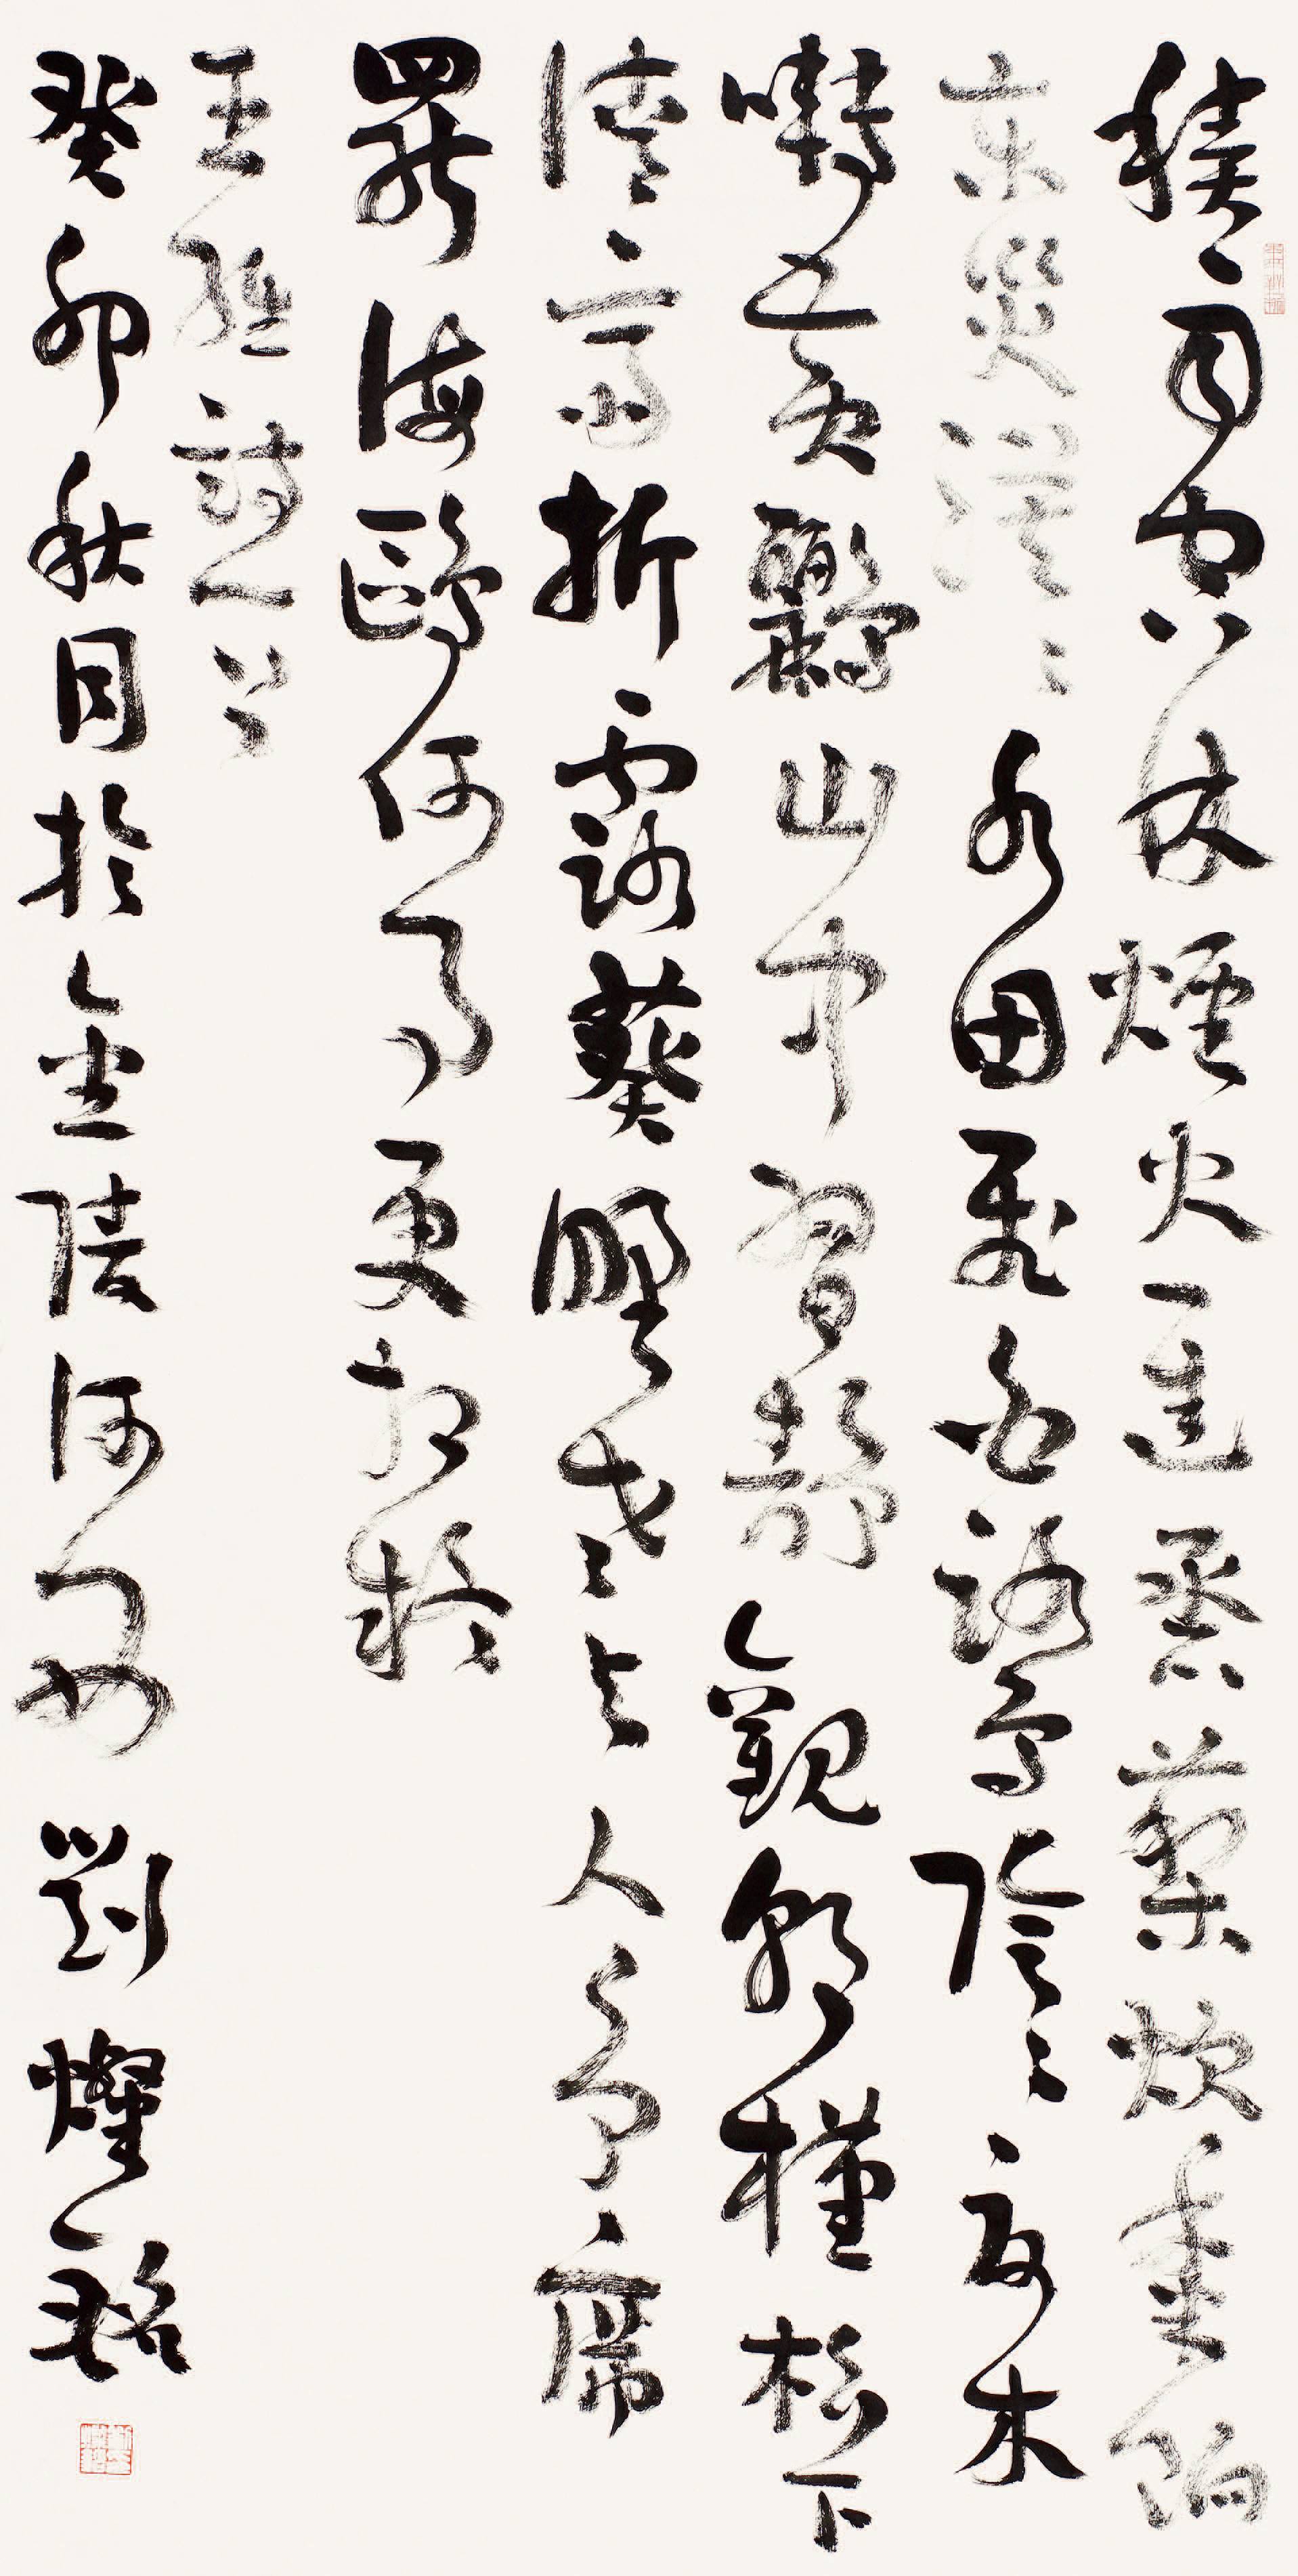 積雨空林煙火遲蒸藜炊黍餉
東菑漠〻水田飛白鷺陰〻夏木
囀黃鸝山中習靜觀朝槿松下
清齋折露葵野老與人爭席
罷海鷗何事更相疑
王維詩一首
癸卯秋月於金陵河西劉燦銘